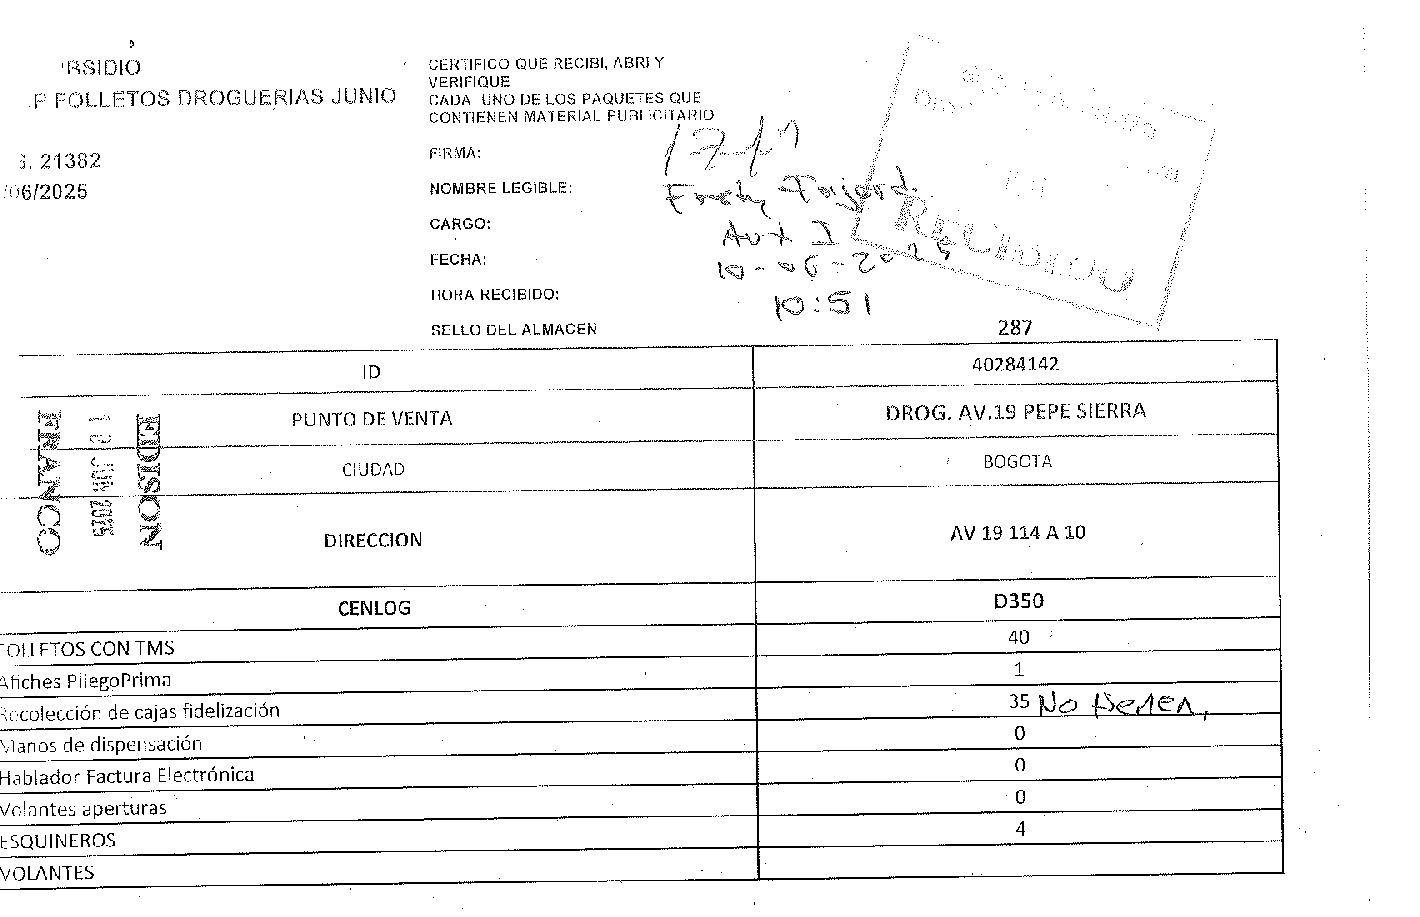 RSIDIO
P FOLLETOS DROGUERIAS JUNIO
. 21382
/06/2025
CERTIFICO QUE RECIBI, ABRI Y
VERIFIQUE
CADA UNO DE LOS PAQUETES QUE
CONTIENEN MATERIAL PUBLICITARIO
FIRMA:
NOMBRE LEGIBLE:
CARGO: Aux I
FECHA: 10-06-2025
HORA RECIBIDO: 10:51
SELLO DEL ALMACEN
RECIBIDO
287
ID 40284142
PUNTO DE VENTA DROG. AV.19 PEPE SIERRA
CIUDAD BOGOTA
DIRECCION AV 19 114 A 10
EDISON
10 JUN 2025
FRANCO
CENLOG D350
FOLLETOS CON TMS 40
Afiches PliegoPrima 1
Recolección de cajas fidelización 35 No tienen,
Manos de dispensación 0
Hablador Factura Electrónica 0
Volantes aperturas 0
ESQUINEROS 4
VOLANTES